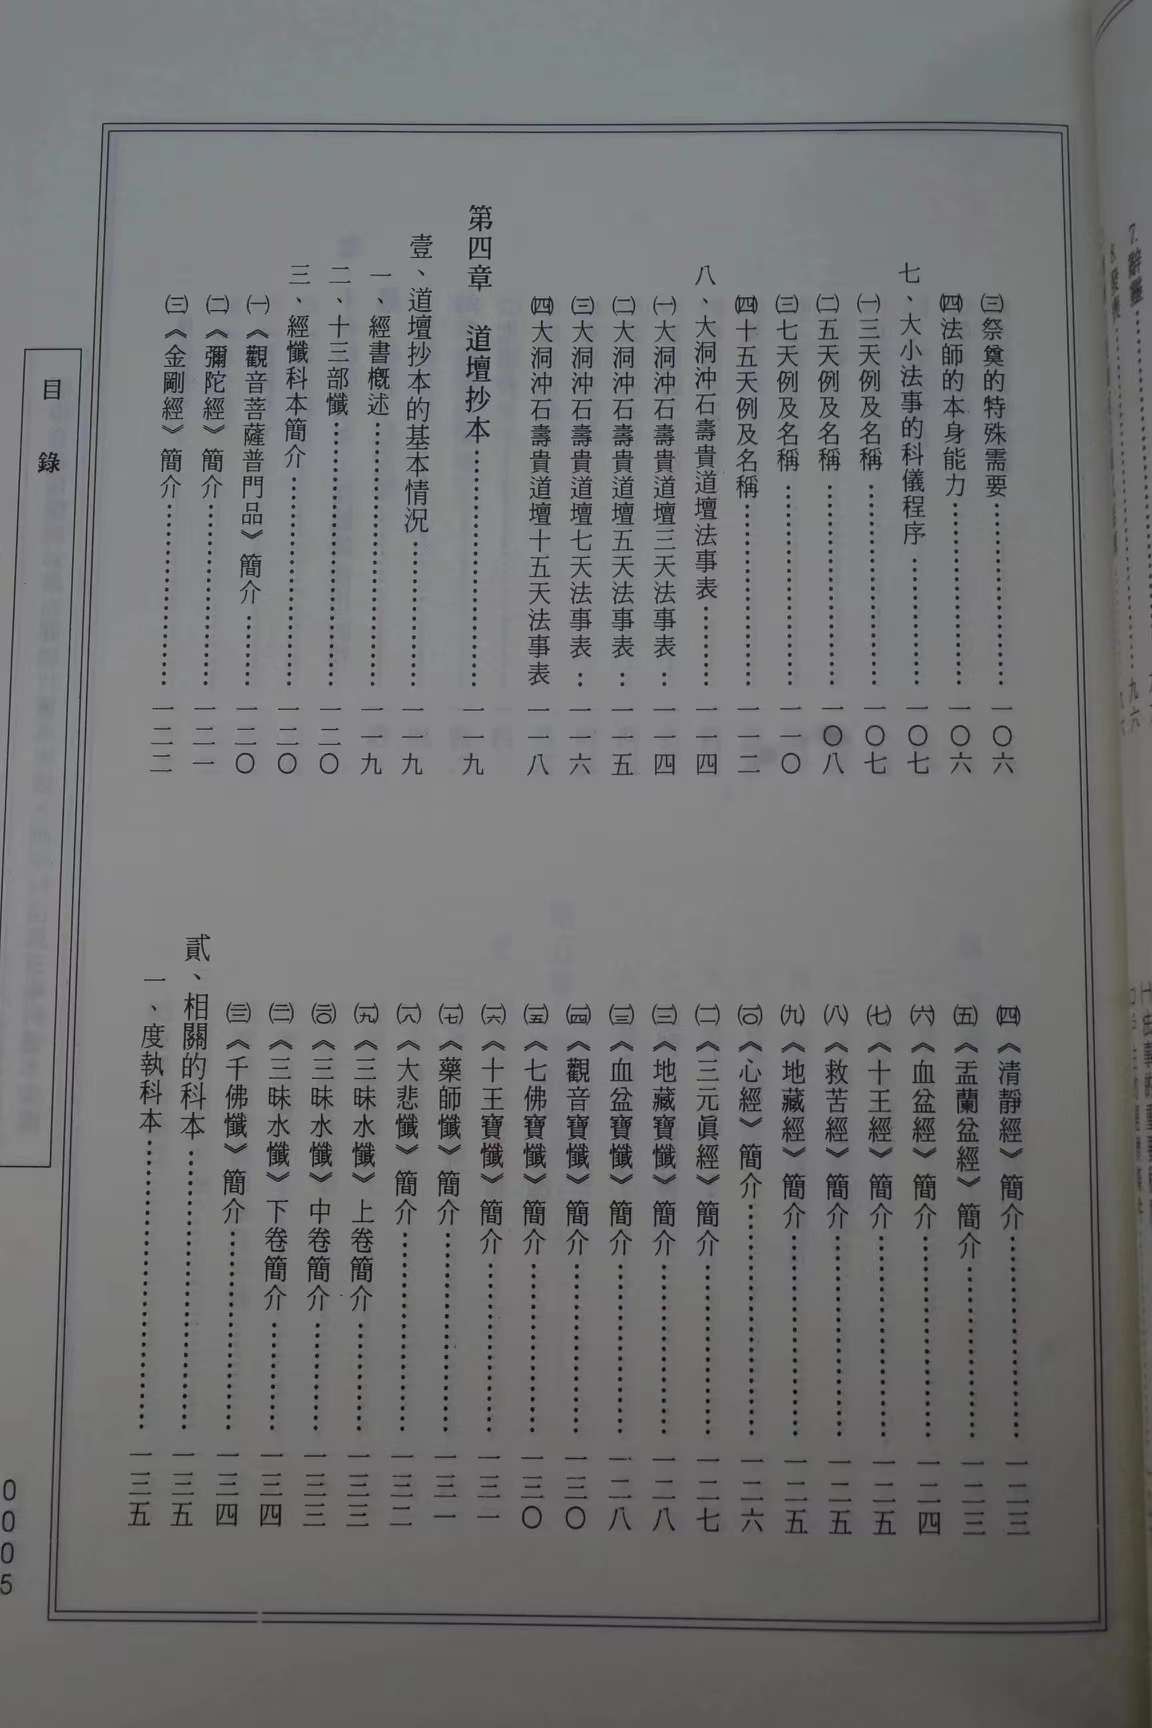 ㈢祭奠的特殊需要……一〇六
㈣法師的本身能力……一〇六
七、大小法事的科儀程序……一〇七
㈠三天例及名稱……一〇七
㈡五天例及名稱……一〇八
㈢七天例及名稱……一一〇
㈣十五天例及名稱……一一二
八、大洞沖石壽貴道壇法事表……一一四
㈠大洞沖石壽貴道壇三天法事表…一一四
㈡大洞沖石壽貴道壇五天法事表…一一五
㈢大洞沖石壽貴道壇七天法事表…一一六
㈣大洞沖石壽貴道壇十五天法事表 一一八
第四章 道壇抄本……一一九
壹、道壇抄本的基本情況……一一九
一、經書概述……一一九
二、十三部懺……一二〇
三、經懺科本簡介……一二〇
㈠《觀音菩薩普門品》簡介……一二〇
㈡《彌陀經》簡介……一二一
㈢《金剛經》簡介……一二二
㈣《清靜經》簡介……一二三
㈤《盂蘭盆經》簡介……一二三
㈥《血盆經》簡介……一二四
㈦《十王經》簡介……一二五
㈧《救苦經》簡介……一二五
㈨《地藏經》簡介……一二五
㈩《心經》簡介……一二六
(一一)《三元眞經》簡介……一二七
(一二)《地藏寶懺》簡介……一二八
(一三)《血盆寶懺》簡介……一二八
(一四)《觀音寶懺》簡介……一三〇
(一五)《七佛寶懺》簡介……一三〇
(一六)《十王寶懺》簡介……一三一
(一七)《藥師懺》簡介……一三一
(一八)《大悲懺》簡介……一三二
(一九)《三昧水懺》上卷簡介……一三三
(二〇)《三昧水懺》中卷簡介……一三三
(二一)《三昧水懺》下卷簡介……一三四
(二二)《千佛懺》簡介……一三四
貳、相關的科本……一三五
一、度執科本……一三五
目錄
0005